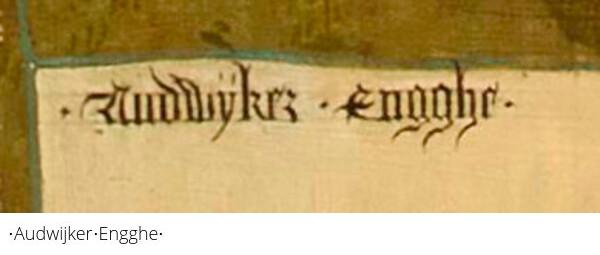 ·Audwÿker·Engghe·
·Audwijker·Engghe·